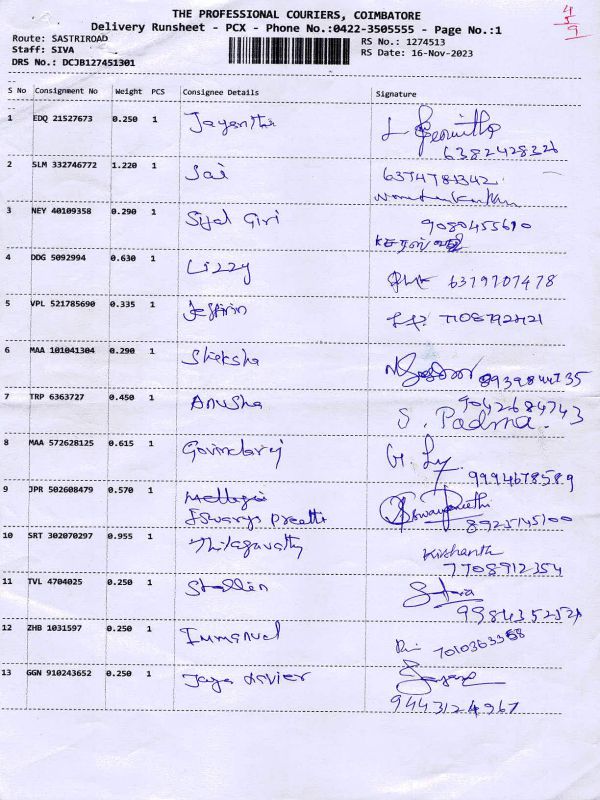 THE PROFESSIONAL COURIERS, COIMBATORE
Delivery Runsheet - PCX - Phone No.:0422-3505555 - Page No.:1
Route: SASTRIROAD
Staff: SIVA
DRS No.: DCJB127451301
RS No.: 1274513
RS Date: 16-Nov-2023
S No Consignment No Weight PCS Consignee Details Signature
1 EDQ 21527673 0.250 1 Jayanthi
6382428326
2 SLM 332746772 1.220 1 Sai 6374781342
3 NEY 40109358 0.290 1 Siyal Giri 9080455690
4 DDG 5092994 0.630 1 Lizzy 6379707478
5 VPL 521785690 0.335 1 Jeffrin
6 MAA 101041304 0.290 1
7 TRP 6363727 0.450 1 Anusha 9042684743
S. Padma.
8 MAA 572628125 0.615 1 Govindaraj
9994678589
9 JPR 502608479 0.570 1
Iswarya Preethi 8925145100
10 SRT 302070297 0.955 1 Thilagavathy Kishanth
7708912354
11 TVL 4704025 0.250 1 Stallin
12 ZHB 1031597 0.250 1 Immanuel 7010363358
13 GGN 910243652 0.250 1 Jaya
9443124967